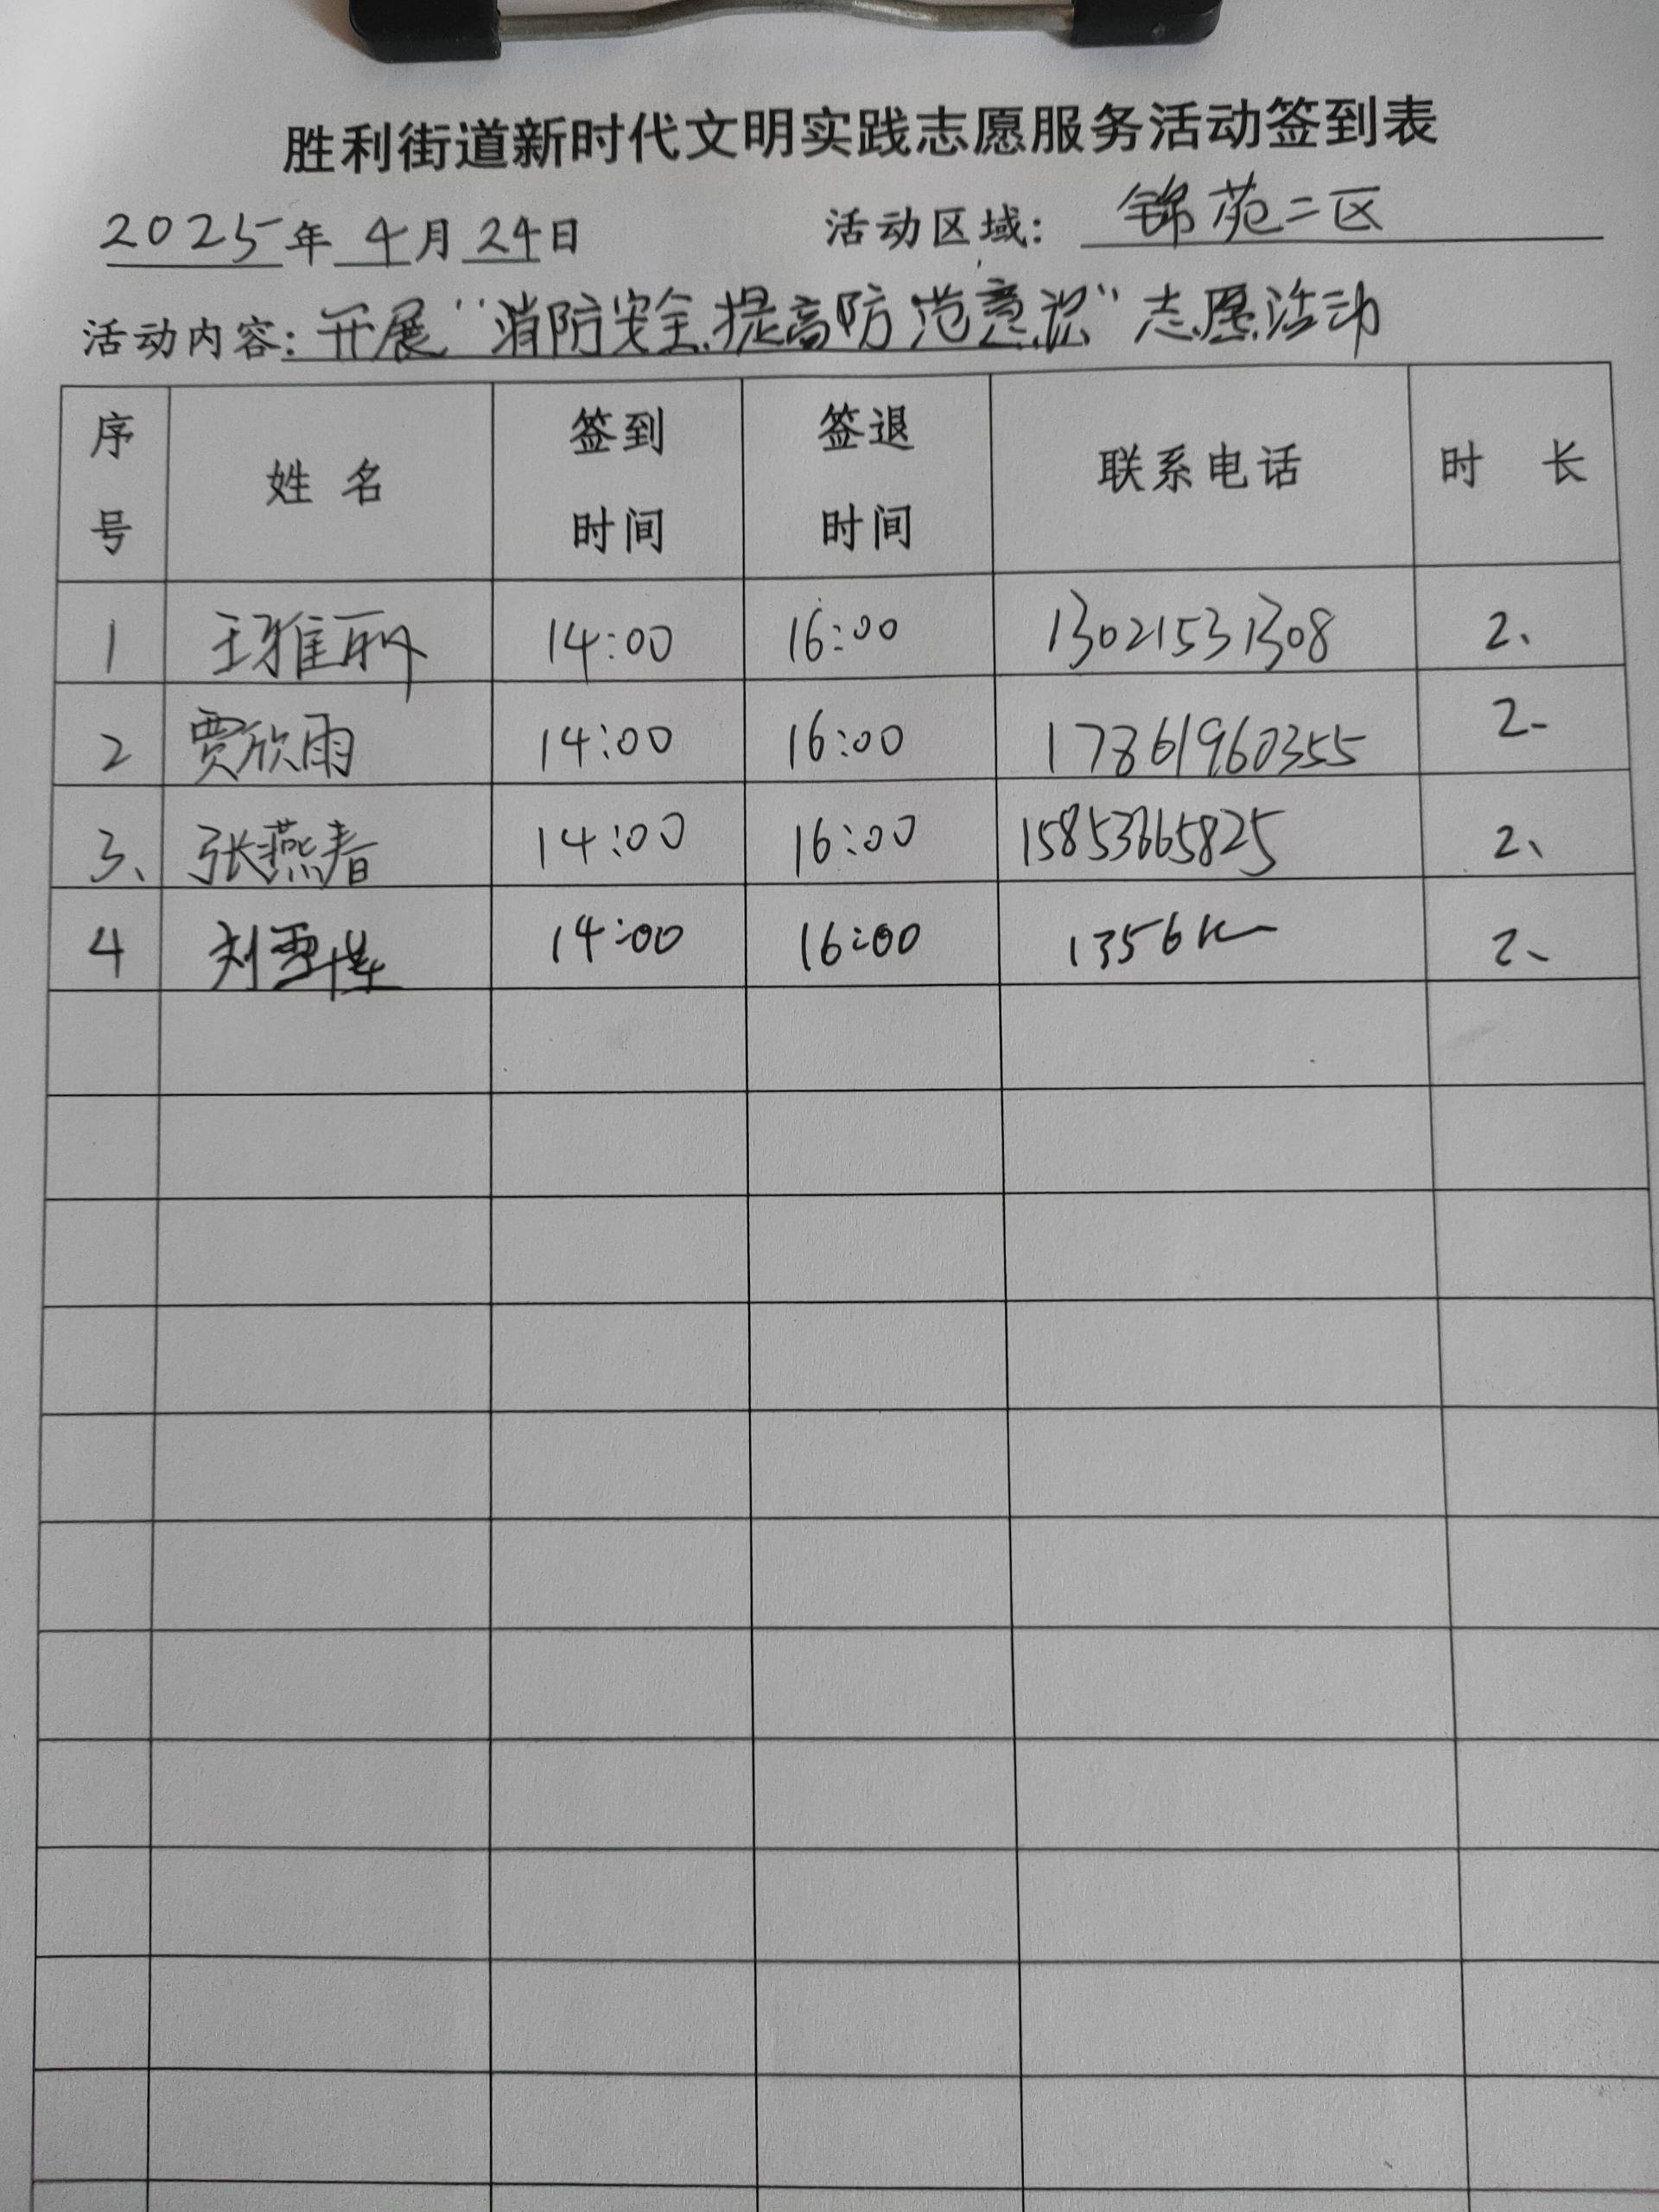 胜利街道新时代文明实践志愿服务活动签到表
2025年 4月24日 活动区域：锦苑二区
活动内容：开展“消防安全.提高防范意识”志愿活动
序号 姓名 签到时间 签退时间 联系电话 时长
1 王雅丽 14:00 16:00 13021531308 2、
2 贾欣雨 14:00 16:00 17861960355 2-
3、 张燕春 14:00 16:00 15853665825 2、
4 刘雪 14:00 16:00 1356 2、